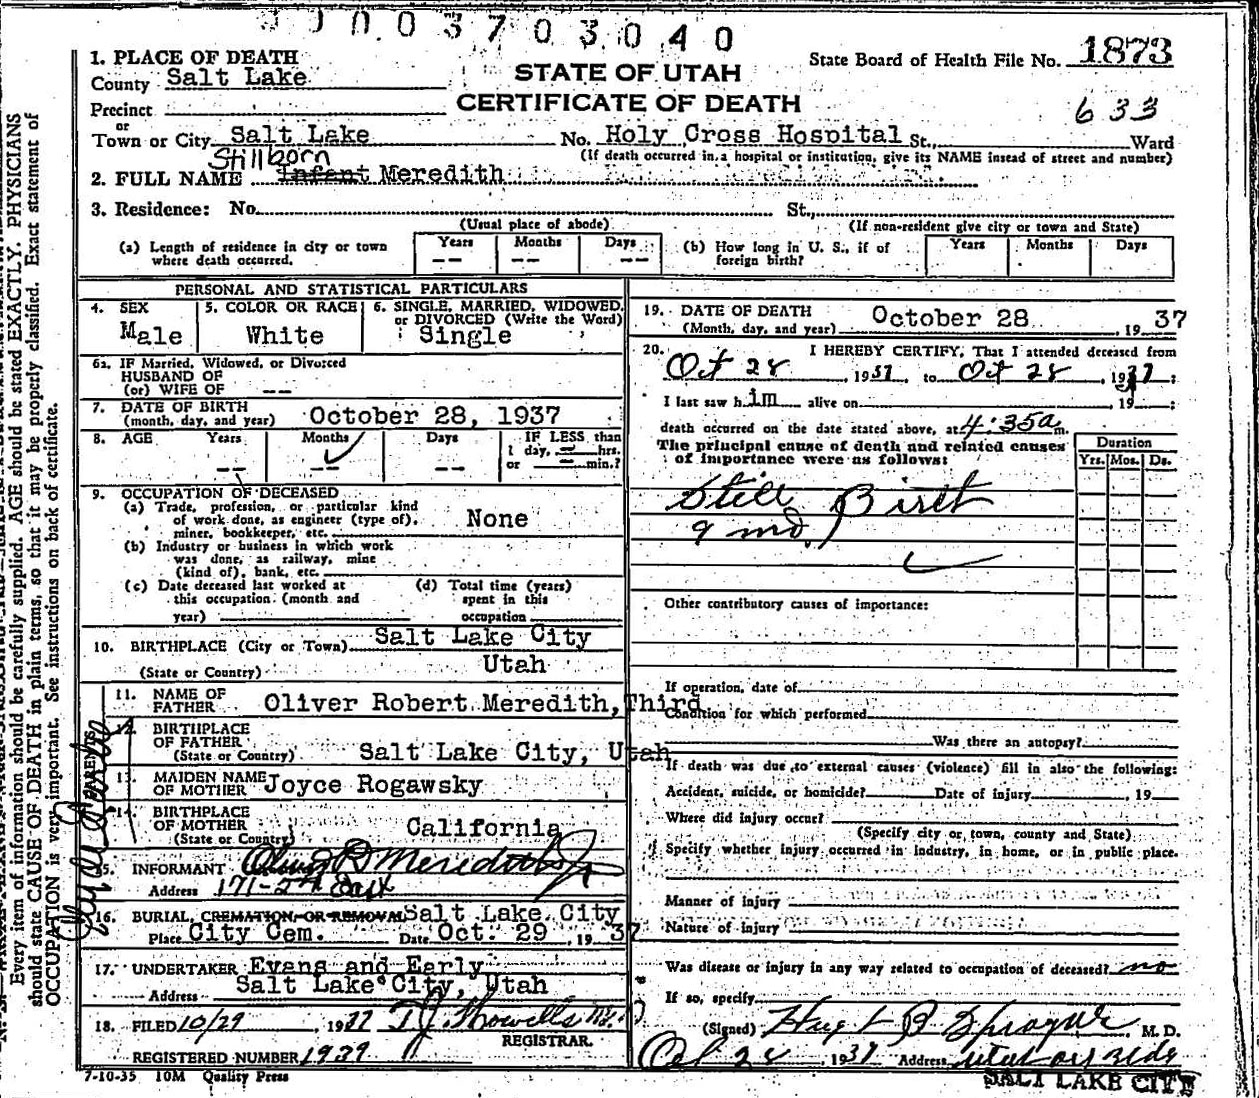 0 0 0 3 7 0 3 0 4 0
1. PLACE OF DEATH
County Salt Lake
Precinct
or
Town or City Salt Lake No. Holy Cross Hospital St., Ward
(If death occurred in a hospital or institution, give its NAME insead of street and number)
STATE OF UTAH
CERTIFICATE OF DEATH
State Board of Health File No. 1873
633
Stillborn
2. FULL NAME Infant Meredith
3. Residence: No. St.,
(Usual place of abode) (If non-resident give city or town and State)
(a) Length of residence in city or town where death occurred. Years -- Months -- Days --
(b) How long in U. S., if of foreign birth? Years Months Days
PERSONAL AND STATISTICAL PARTICULARS
4. SEX Male
5. COLOR OR RACE White
6. SINGLE, MARRIED, WIDOWED, or DIVORCED (Write the Word) Single
6a. IF Married, Widowed, or Divorced
HUSBAND OF
(or) WIFE OF --
7. DATE OF BIRTH
(month, day, and year) October 28, 1937
8. AGE Years -- Months -- Days -- IF LESS than 1 day, -- hrs. or -- min.?
9. OCCUPATION OF DECEASED
(a) Trade, profession, or particular kind
of work done, as engineer (type of),
miner, bookkeeper, etc. None
(b) Industry or business in which work
was done, as railway, mine
(kind of), bank, etc.
(c) Date deceased last worked at
this occupation (month and
year)
(d) Total time (years)
spent in this
occupation
10. BIRTHPLACE (City or Town) Salt Lake City
(State or Country) Utah
PARENTS
11. NAME OF FATHER Oliver Robert Meredith, Third
12. BIRTHPLACE OF FATHER
(State or Country) Salt Lake City, Utah
13. MAIDEN NAME OF MOTHER Joyce Rogawsky
14. BIRTHPLACE OF MOTHER
(State or Country) California
15. INFORMANT Meredith Jr
Address 171-2nd East
16. BURIAL, CREMATION, OR REMOVAL Salt Lake City
Place City Cem. Date Oct. 29, 1937
17. UNDERTAKER Evans and Early
Address Salt Lake City, Utah
18. FILED 10/29, 1937 T J Howells M.D.
REGISTRAR.
REGISTERED NUMBER 1939
7-10-35 10M Quality Press
19. DATE OF DEATH
(Month, day, and year) October 28, 1937
20. I HEREBY CERTIFY, That I attended deceased from
Oct 28, 1937 to Oct 28, 1937;
I last saw him alive on 19 ;
death occurred on the date stated above, at 4:35a m.
The principal cause of death and related causes
of importance were as follows:
Duration
Yrs. Mos. Ds.
Still Birth
9 mo.
Other contributory causes of importance:
If operation, date of
Condition for which performed
Was there an autopsy?
If death was due to external causes (violence) fill in also the following:
Accident, suicide, or homicide? Date of injury , 19
Where did injury occur?
(Specify city or town, county and State)
Specify whether injury occurred in industry, in home, or in public place.
Manner of injury
Nature of injury
Was disease or injury in any way related to occupation of deceased? no
If so, specify
(Signed) Hugh B Sprague M. D.
Oct 28, 1937 Address
SALT LAKE CITY
Every item of information should be carefully supplied. AGE should be stated EXACTLY. PHYSICIANS
should state CAUSE OF DEATH in plain terms, so that it may be properly classified. Exact statement of
OCCUPATION is very important. See instructions on back of certificate.